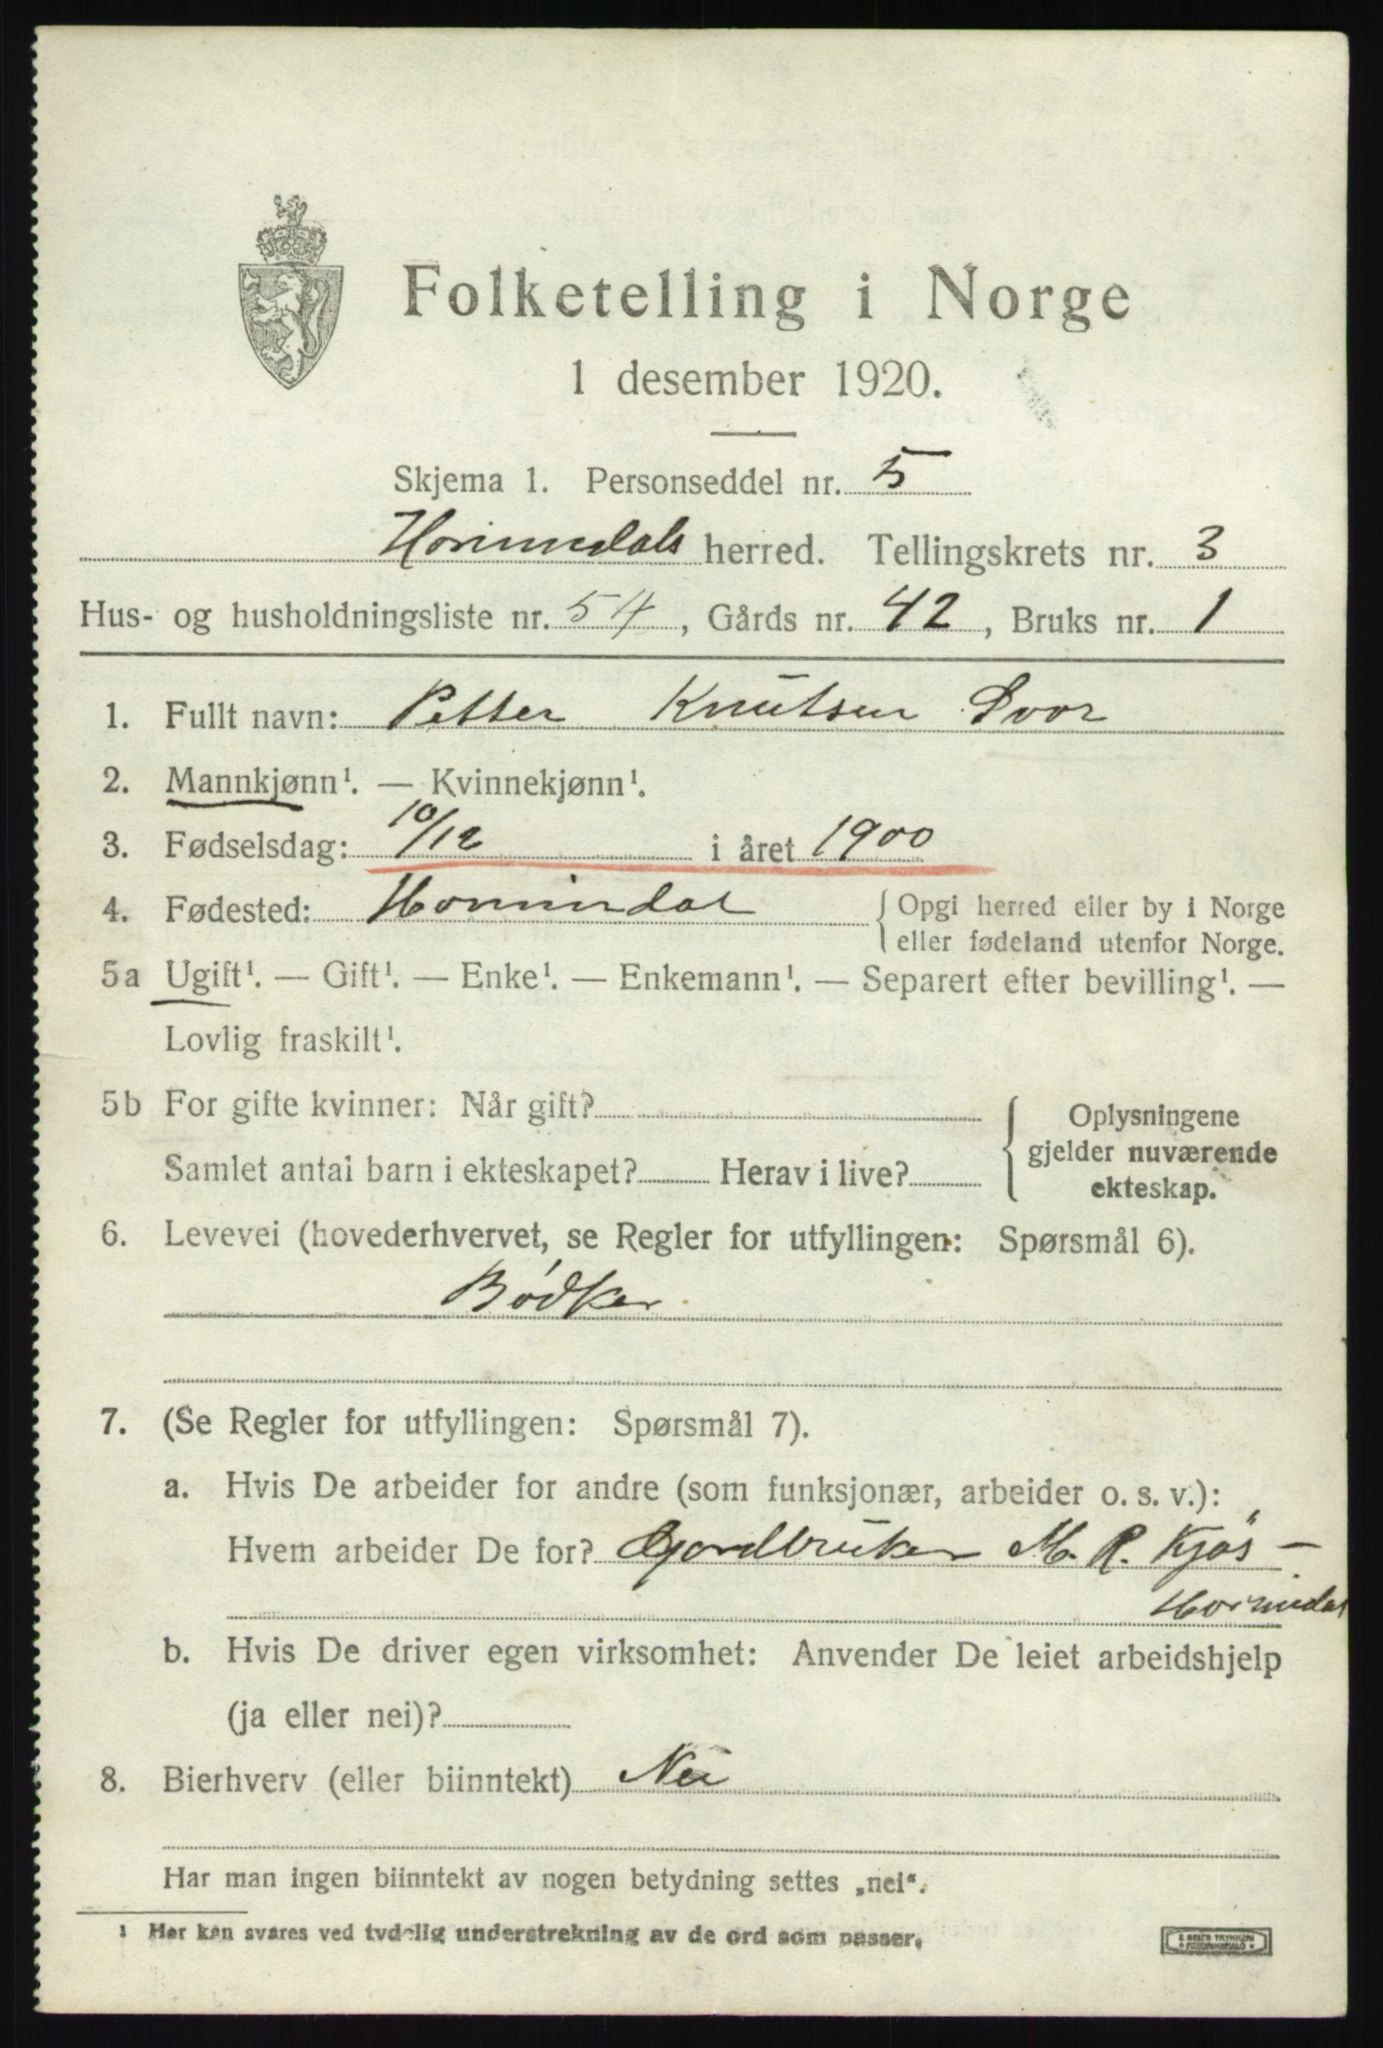 Folketelling i Norge
1 desember 1920.
Skjema 1. Personseddel nr. 5
Hornindals herred. Tellingskrets nr. 3
Hus- og husholdningsliste nr. 54, Gårds nr. 42, Bruks nr. 1
1. Fullt navn: Petter Knutsen Svor
2. Mannkjønn¹. — Kvinnekjønn¹.
3. Fødselsdag: 10/12 i året 1900
4. Fødested: Hornindal { Opgi herred eller by i Norge
eller fødeland utenfor Norge.
5a Ugift¹. — Gift¹. — Enke¹. — Enkemann¹. — Separert efter bevilling¹. —
Lovlig fraskilt¹.
5b For gifte kvinner: Når gift?
Samlet antal barn i ekteskapet? Herav i live?
Oplysningene
gjelder nuværende
ekteskap.
6. Levevei (hovederhvervet, se Regler for utfyllingen: Spørsmål 6).
Bödker
7. (Se Regler for utfyllingen: Spørsmål 7).
a. Hvis De arbeider for andre (som funksjonær, arbeider o. s. v.):
Hvem arbeider De for? Gjordbruker M. R. Kjös –
Hornindal
b. Hvis De driver egen virksomhet: Anvender De leiet arbeidshjelp
(ja eller nei)?
8. Bierhverv (eller biinntekt) Nei
Har man ingen biinntekt av nogen betydning settes „nei".
¹ Her kan svares ved tydelig understrekning av de ord som passer.